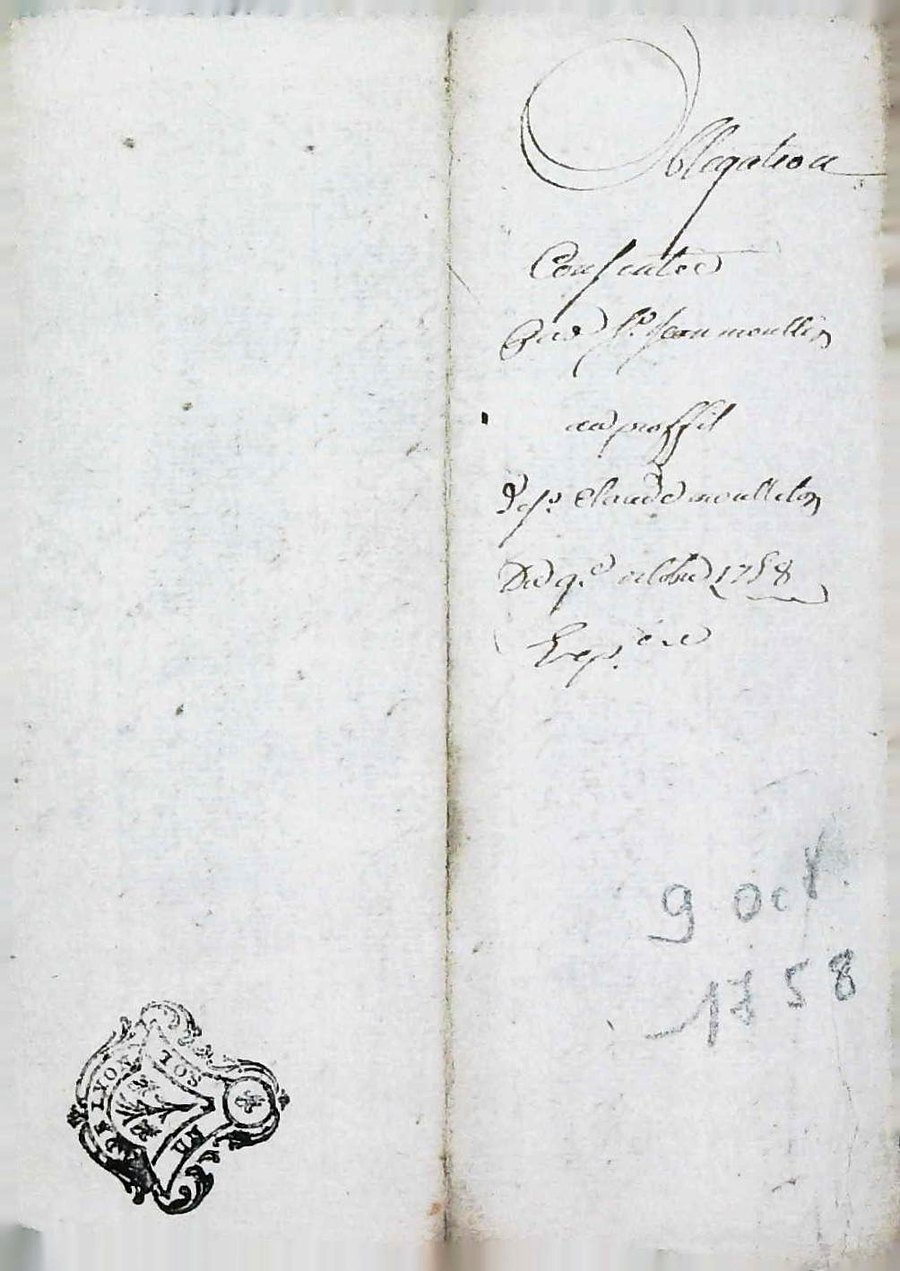 Obligation
Consentie
Par Sr. Jean moullin
au proffit
De sr. Claude moullilon
Du 9e. octobre 1758
Exp.
9 oct.
1758
G. DE LYON
UN
SOL